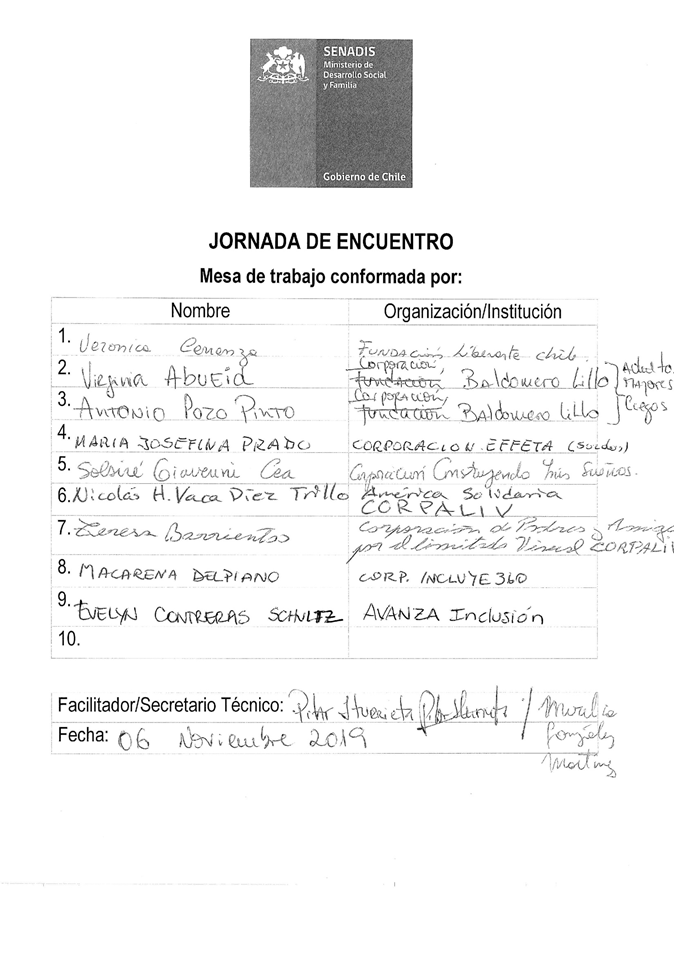 SENADIS
Ministerio de
Desarrollo Social
y Familia
Gobierno de Chile
JORNADA DE ENCUENTRO
Mesa de trabajo conformada por:
Nombre Organización/Institución
1. Veronica Fundación Liberarte Chile
2. Virginia Abueid Corporación, fundación Baldomero Lillo
3. Antonio Pozo Pinto Corporación, fundación Baldomero Lillo
Adulto
Mayores
Ciegos
4. MARIA JOSEFINA PRADO CORPORACION EFFETA (Sordos)
5. Solsiré Giaverini Cea Corporación Construyendo Mis Sueños.
6. Nicolás H. Vaca Diez Trillo América Solidaria
CORPALIV
7. Teresa Barrientos Corporación de Padres y Amigos
por el limitado Visual CORPALIV
8. MACARENA DELPIANO CORP. INCLUYE 360
9. EVELYN CONTRERAS SCHULTZ AVANZA Inclusión
10.
Facilitador/Secretario Técnico: Pilar Iturrieta / González
Fecha: 06 Noviembre 2019